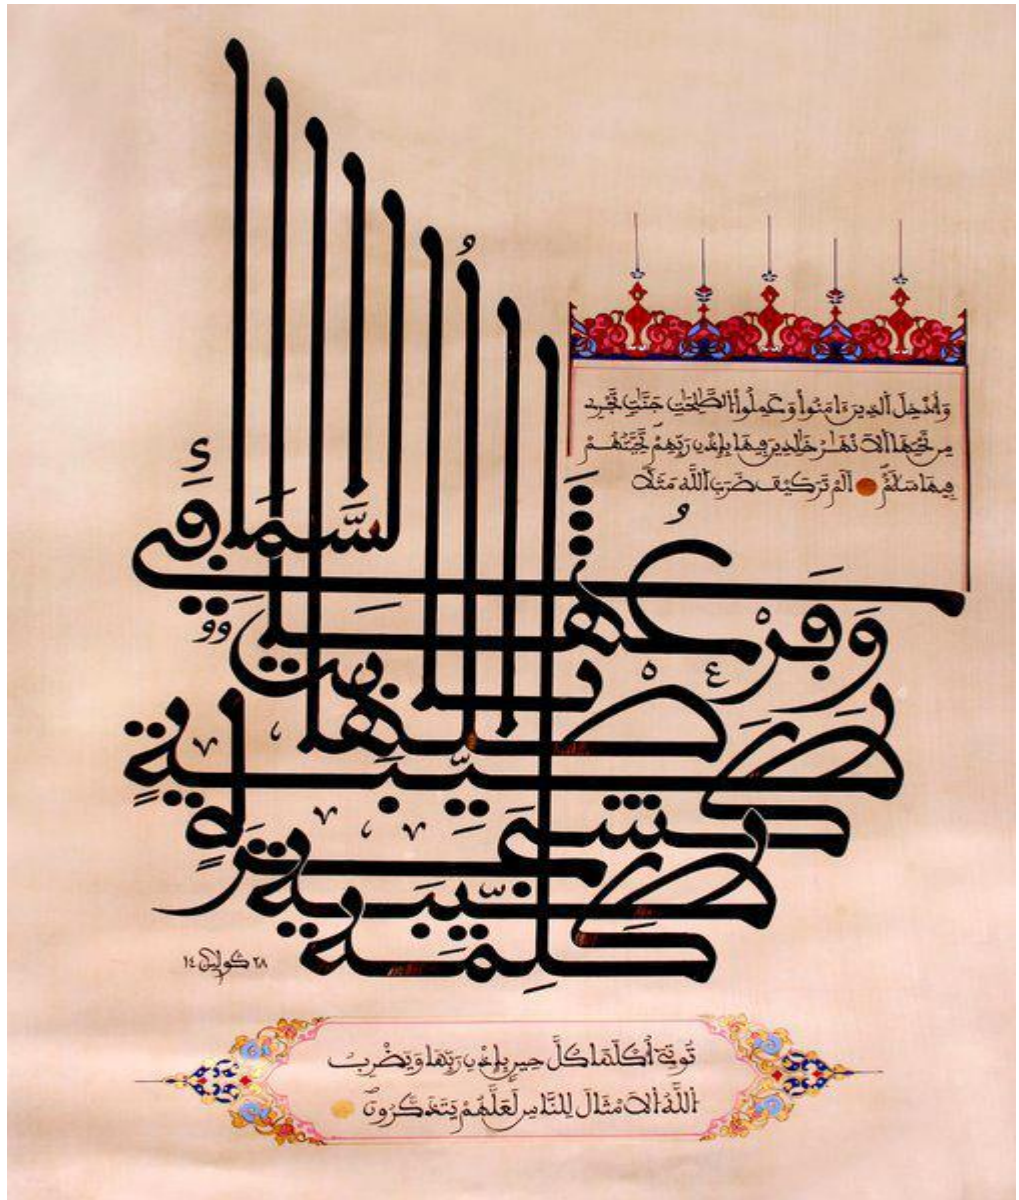 وَأُدْخِلَ ٱلَّذِينَ ءَامَنُوا۟ وَعَمِلُوا۟ ٱلصَّٰلِحَٰتِ جَنَّٰتٍ تَجْرِى
مِن تَحْتِهَا ٱلْأَنْهَٰرُ خَٰلِدِينَ فِيهَا بِإِذْنِ رَبِّهِمْ تَحِيَّتُهُمْ
فِيهَا سَلَٰمٌ أَلَمْ تَرَ كَيْفَ ضَرَبَ ٱللَّهُ مَثَلًا
كَلِمَةً
طَيِّبَةً
كَشَجَرَةٍ
طَيِّبَةٍ
أَصْلُهَا ثَابِتٌ
وَفَرْعُهَا
فِى ٱلسَّمَآءِ
تُؤْتِىٓ أُكُلَهَا كُلَّ حِينٍۭ بِإِذْنِ رَبِّهَا وَيَضْرِبُ
ٱللَّهُ ٱلْأَمْثَالَ لِلنَّاسِ لَعَلَّهُمْ يَتَذَكَّرُونَ